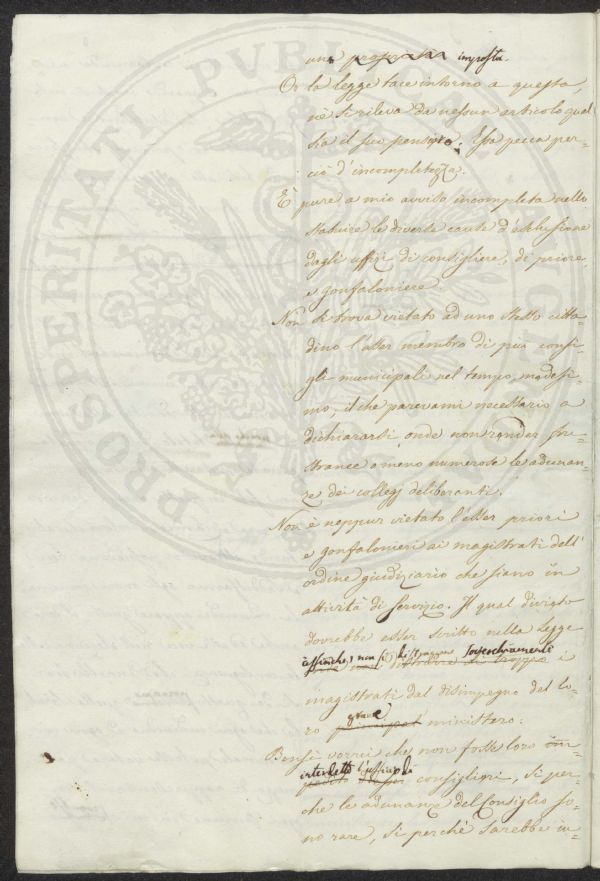 una proposta imposta.
Or la legge tace intorno a questo,
nè si rileva da nessun articolo qual
sia il suo pensiero. Essa pecca per-
ciò d'incompletezza.
È pure a mio avviso incompleta nello
statuire le diverse cause d'esclusione
dagli uffizi di consigliere, di priore
e gonfaloniere.
Non si trova vietato ad uno stesso citta-
dino l'esser membro di più consi-
gli municipali nel tempo medesi-
mo, il che parevami necessario a
dichiararsi, onde non render fru-
strance o meno numerose le adunan-
ze dei collegj deliberanti.
Non è neppur vietato l'esser priori
e gonfalonieri ai magistrati dell'
ordine giudiziario che siano in
attività di servizio. Il qual divieto
dovrebbe esser scritto nella legge
affinchè non si distraggano soverchiamente
distrarre di troppo i
magistrati dal disimpegno del lo-
grave
ro principal ministero.
Bensì vorrei che non fosse loro im-
interdetto l'ufficio di
pedito consiglieri, sì per-
chè le adunanze del Consiglio so-
no rare, sì perchè sarebbe in-
PROSPERITATI PVBLICAE